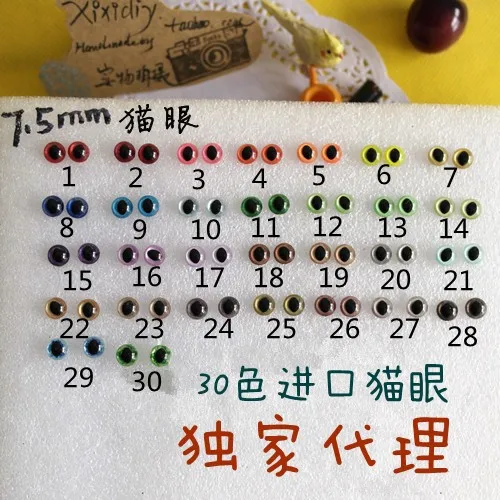 Xixidiy
Handmade
taobao.com
宝物明璃
7.5mm 猫眼
1 2 3 4 5 6 7
8 9 10 11 12 13 14
15 16 17 18 19 20 21
22 23 24 25 26 27 28
29 30
30色进口猫眼
独家代理